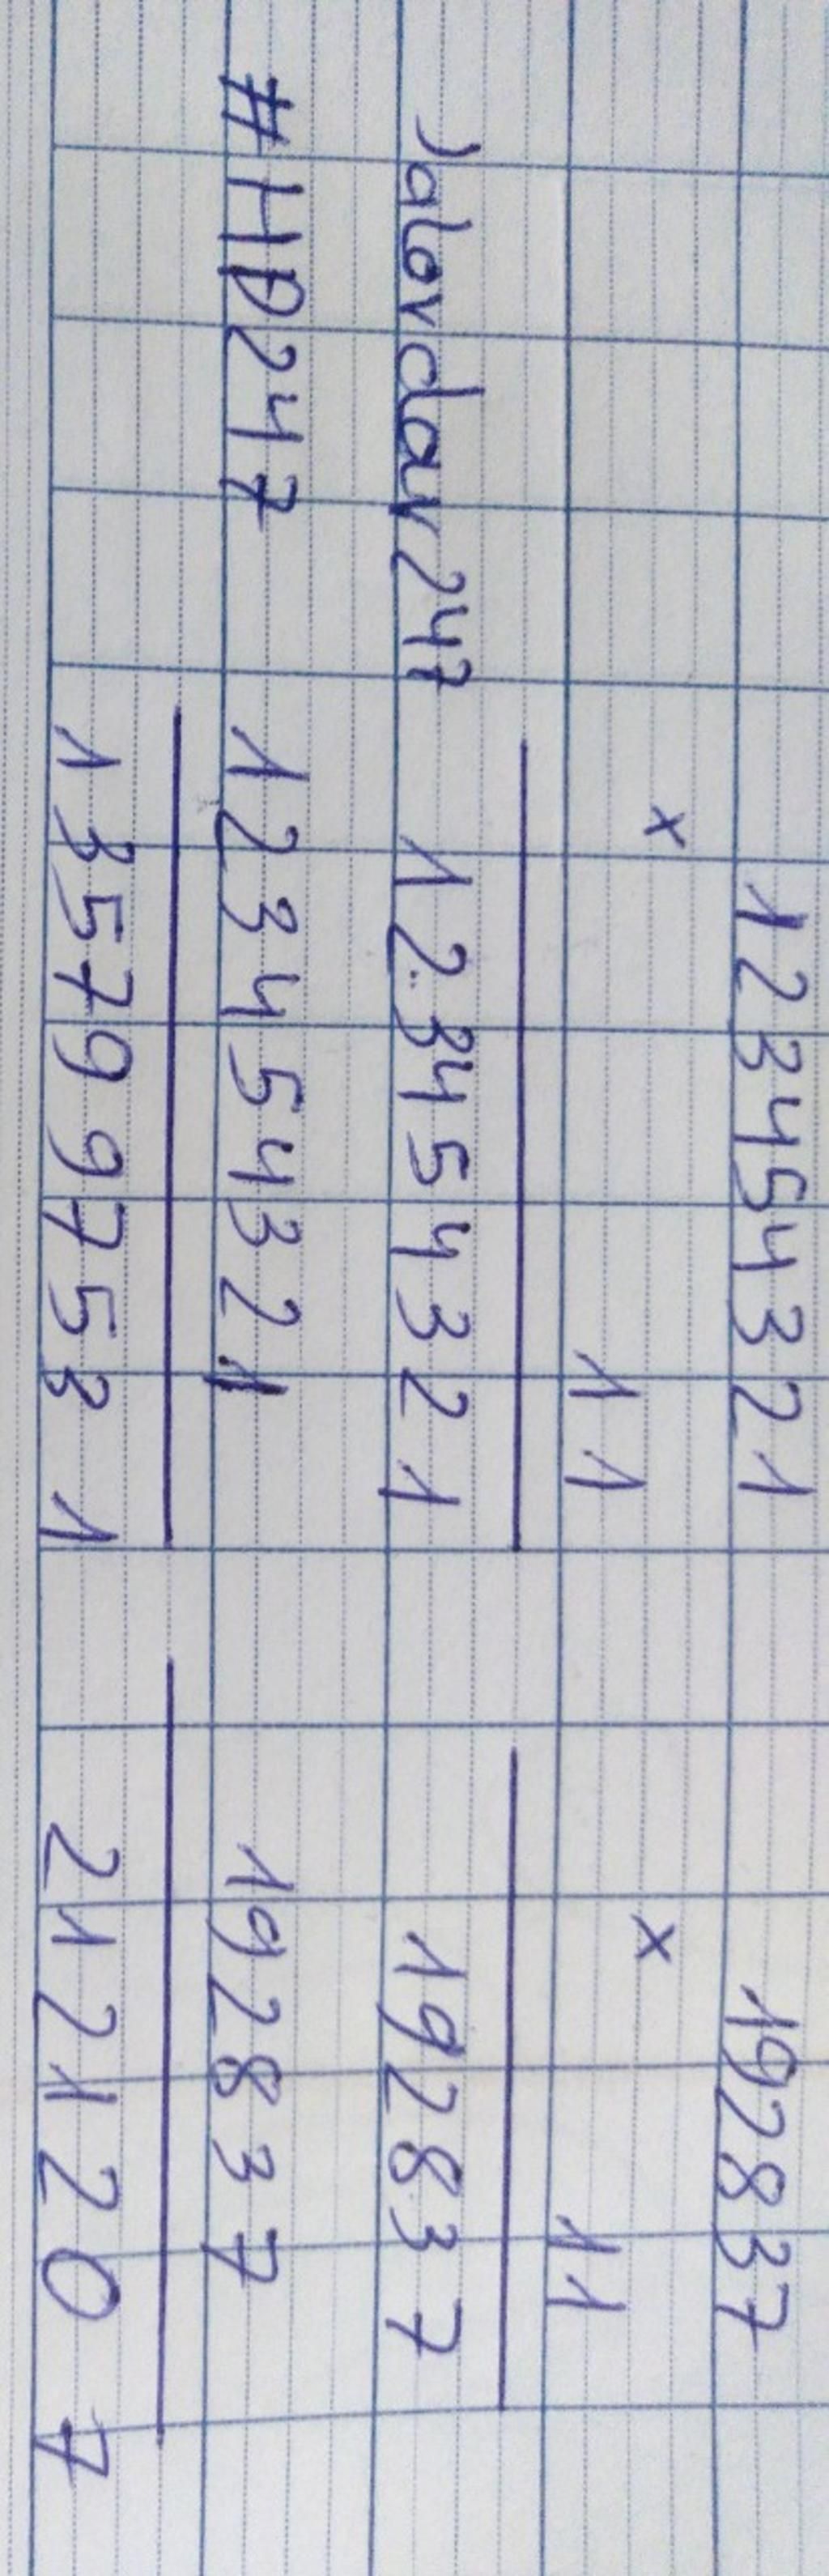 123454321 192837
x 11 x 11
123454321 192837
#HD247 123454321 192837
1357997531 2121207